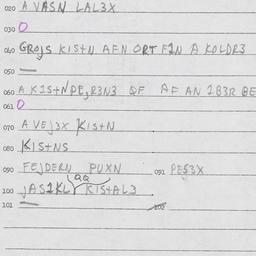 020 A VASN LAL3X
030
040 GROjS KIStN AFN ORT F1N A KOLDR3
050
060 A KIStNPEjR3N3 QF AF AN 1B3R BE
061
070 A VEj3X KIStN
080 KIStNS
090 FEjDERN PUXN 091 PES3X
aa
100 jAS1KL KIStAL3
101 102